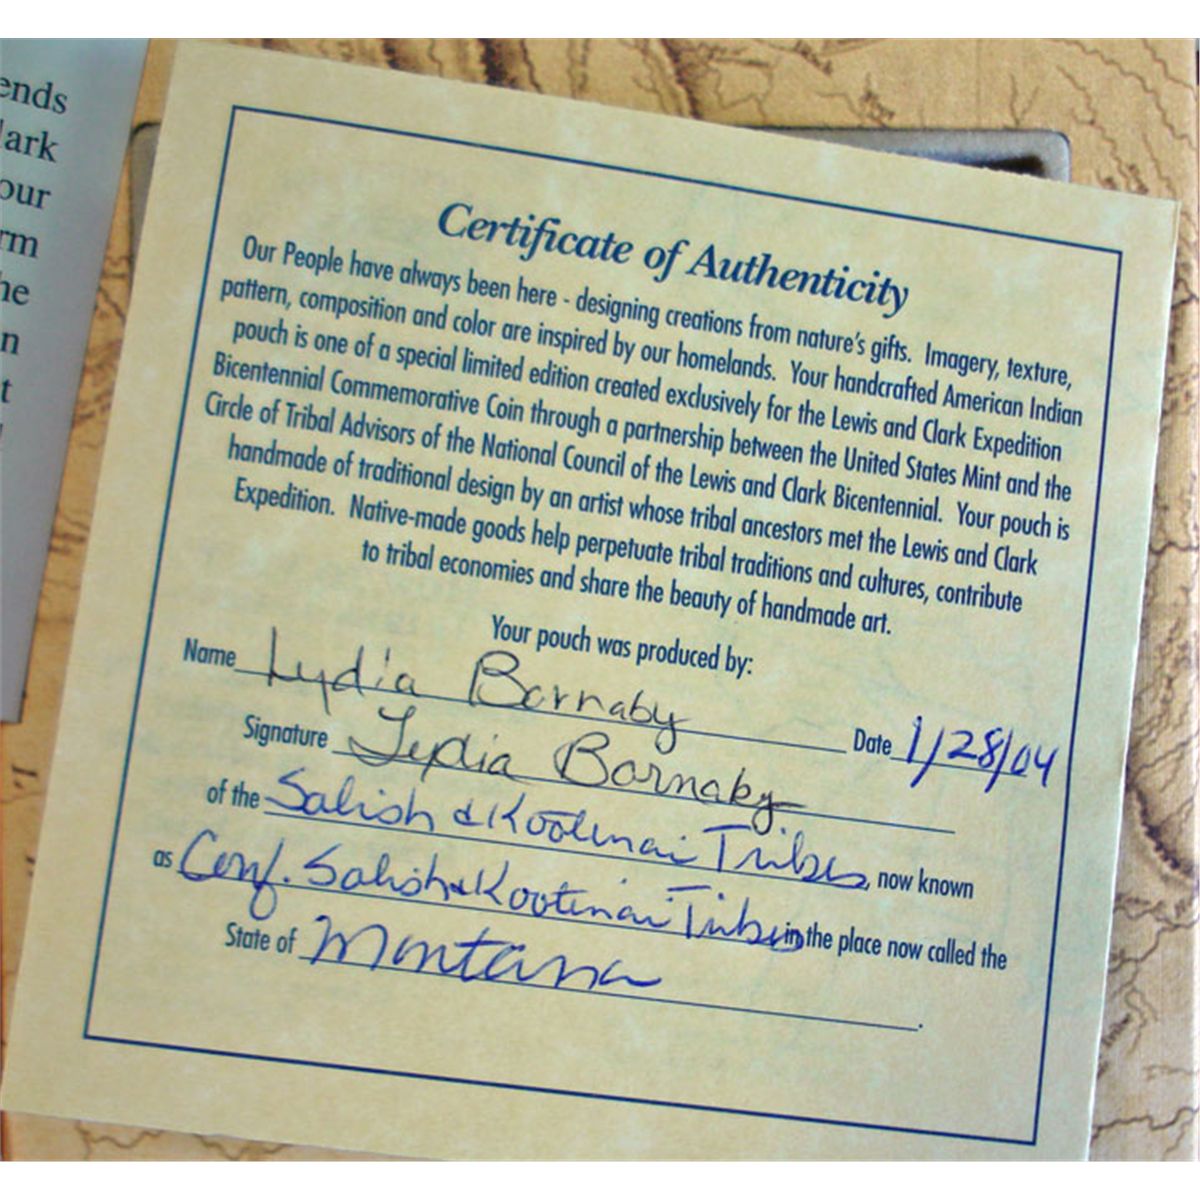 ends
lark
our
rm
he
n
t
Certificate of Authenticity
Our People have always been here - designing creations from nature's gifts. Imagery, texture,
pattern, composition and color are inspired by our homelands. Your handcrafted American Indian
pouch is one of a special limited edition created exclusively for the Lewis and Clark Expedition
Bicentennial Commemorative Coin through a partnership between the United States Mint and the
Circle of Tribal Advisors of the National Council of the Lewis and Clark Bicentennial. Your pouch is
handmade of traditional design by an artist whose tribal ancestors met the Lewis and Clark
Expedition. Native-made goods help perpetuate tribal traditions and cultures, contribute
to tribal economies and share the beauty of handmade art.
Your pouch was produced by:
Name Lydia Barnaby Date 1/28/04
Signature Lydia Barnaby
of the Salish & Kootenai Tribes, now known
as Conf. Salish & Kootenai Tribes in the place now called the
State of Montana.